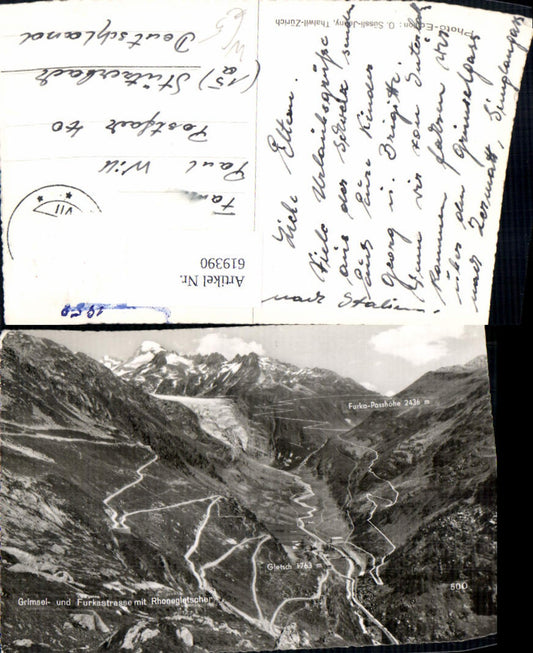 Photo-Edition: O. Süssli-Jenny, Thalwil-Zürich
Liebe Eltern.
Viele Urlaubsgrüße
aus der Schweiz senden
Euch Eure Kinder
Georg u. Brigitte.
wir von Interlak
kammen fahren wir
über den Grimselpass
nach Zermatt,
nach Italien.
Fam
Paul Will
Postfach 40
(15) Stützerbach
a
Deutschland
VII
Artikel Nr.
619390
1958
Furka-Passhöhe 2436 m
Gletsch 1763 m
500
Grimsel- und Furkastrasse mit Rhonegletscher